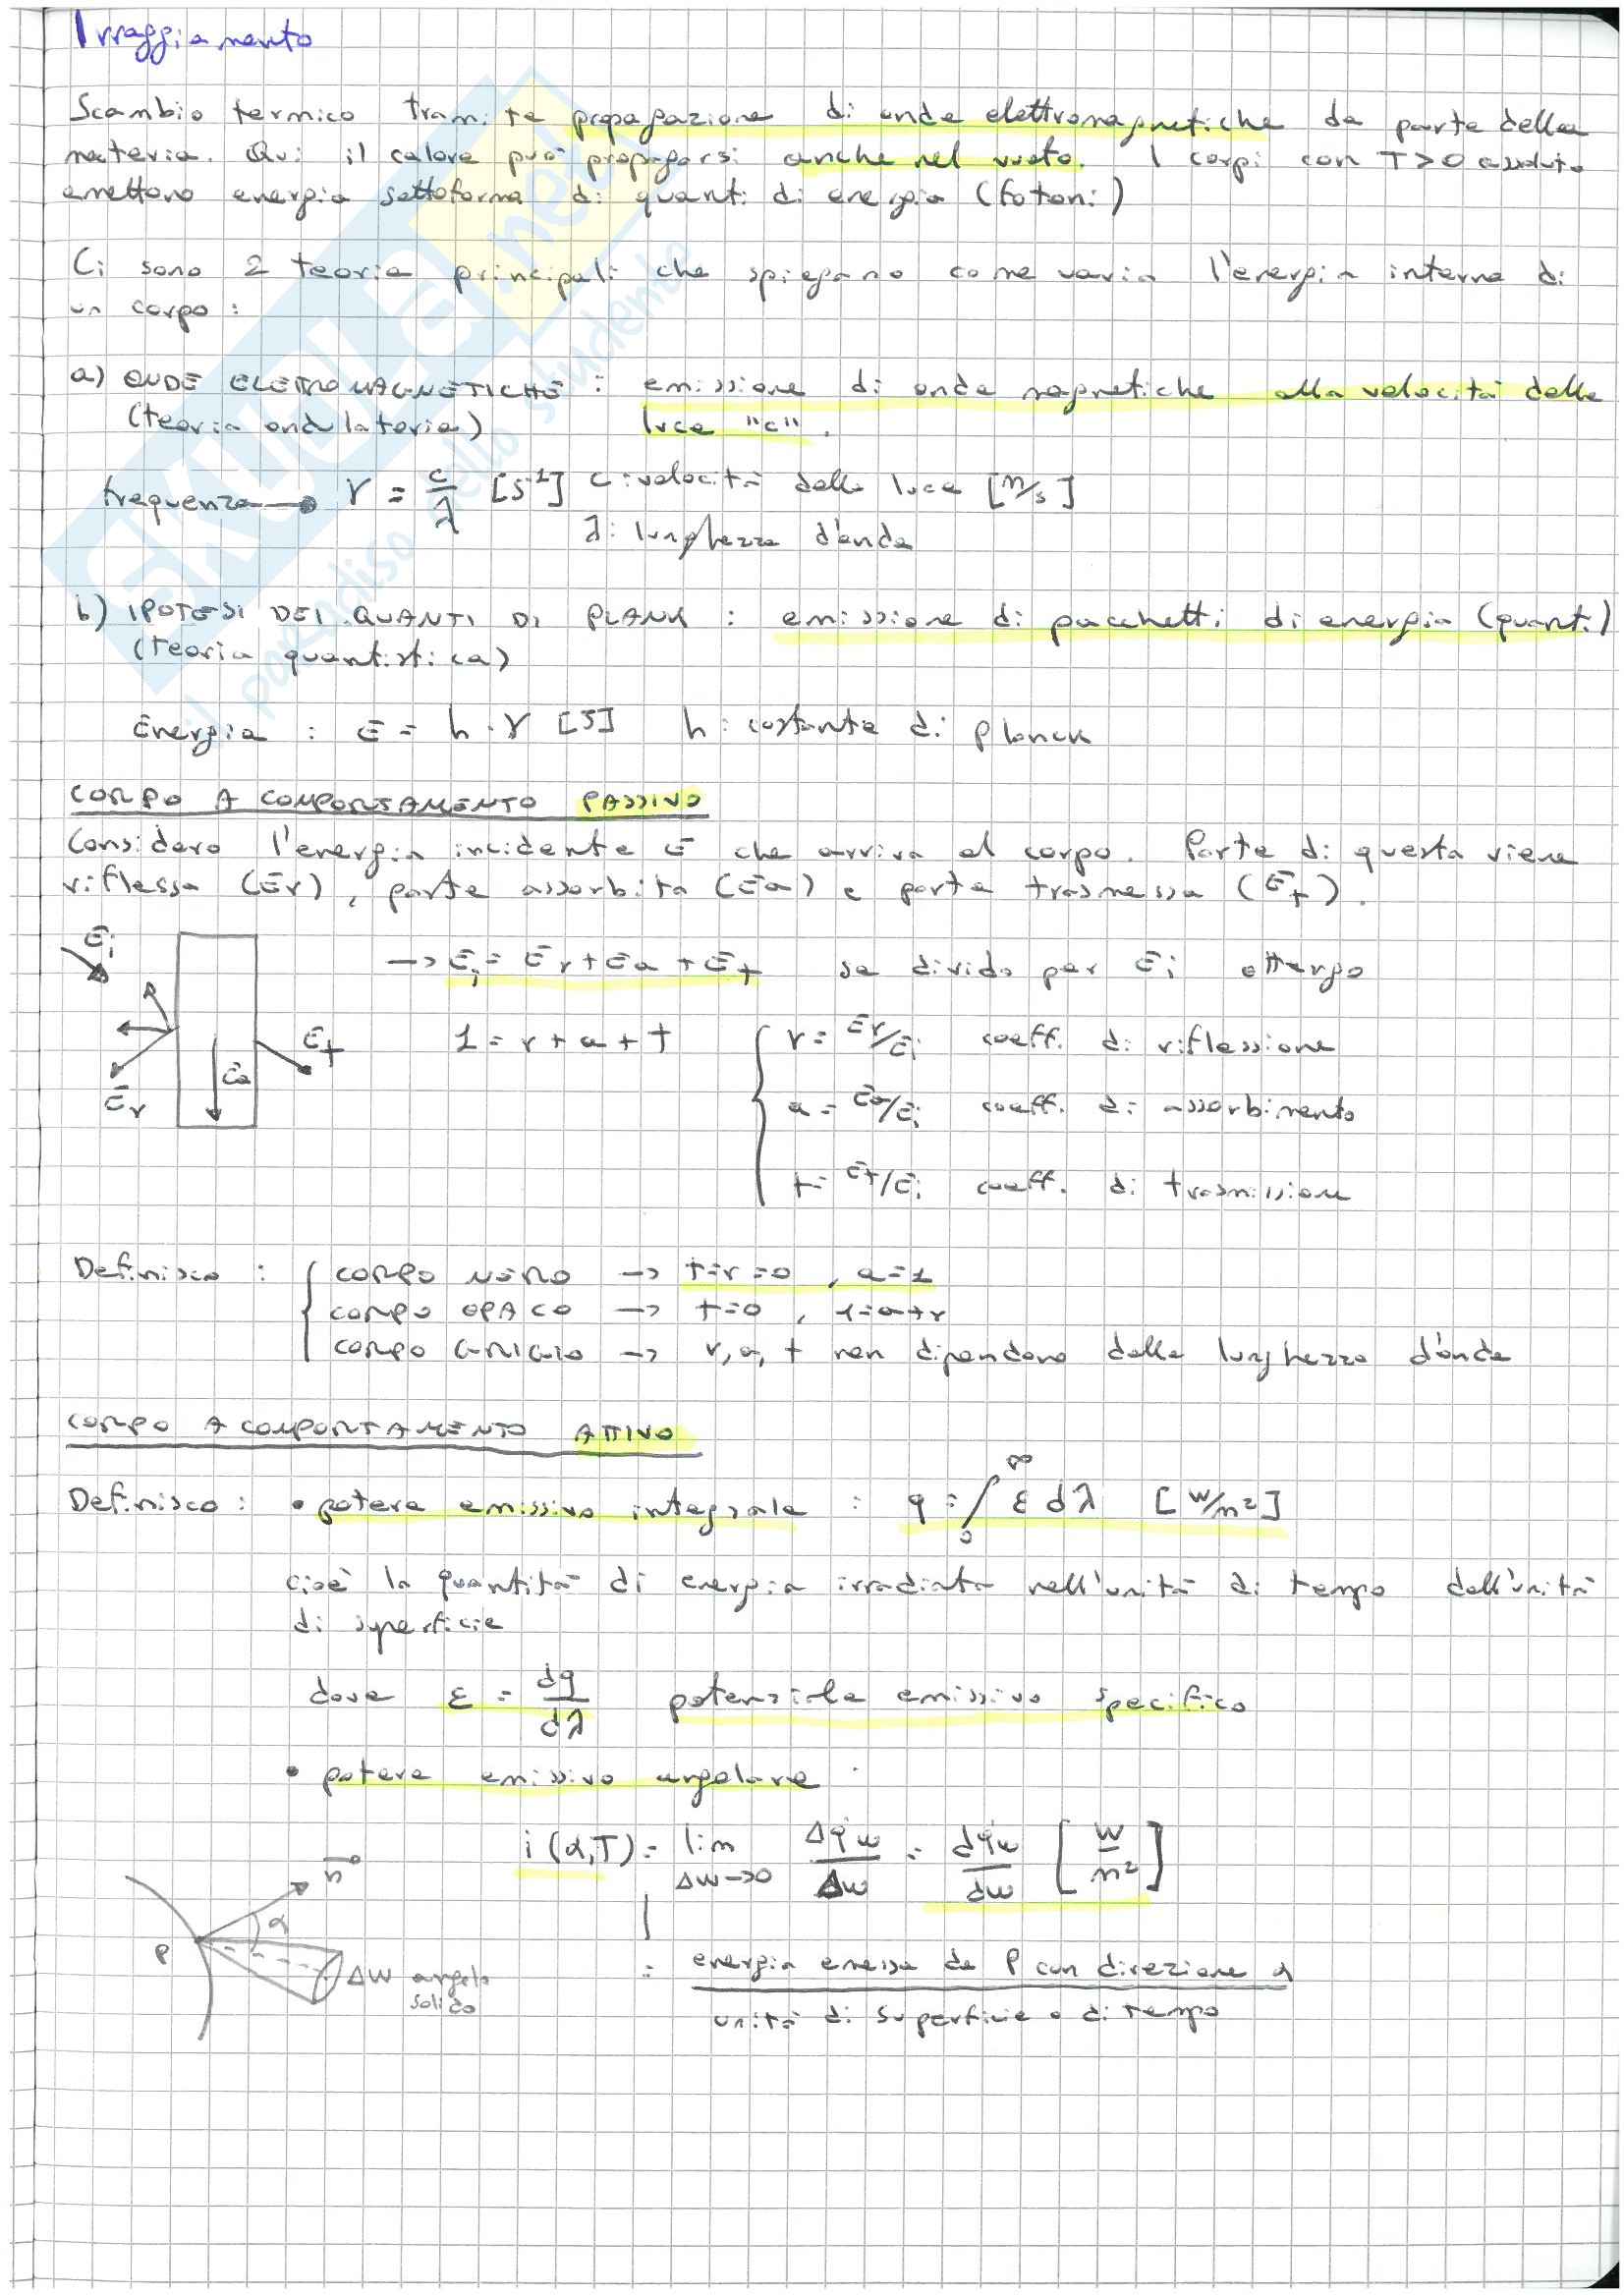 Irraggiamento
Scambio termico tramite propagazione di onde elettromagnetiche da parte della
materia. Qui il calore può propagarsi anche nel vuoto. I corpi con T>0 assoluto
emettono energia sottoforma di quanti di energia (fotoni)
Ci sono 2 teorie principali che spiegano come varia l'energia interna di
un corpo :
a) ONDE ELETTROMAGNETICHE : emissione di onde magnetiche alla velocità della
(teoria ondulatoria) luce "c".
frequenza → γ = c/λ [s⁻¹] c: velocità della luce [m/s]
λ: lunghezza d'onda
b) IPOTESI DEI QUANTI DI PLANK : emissione di pacchetti di energia (quanti)
(teoria quantistica)
Energia : E = h·γ [J] h: costante di Planck
CORPO A COMPORTAMENTO PASSIVO
Considero l'energia incidente E che arriva al corpo. Parte di questa viene
riflessa (Er), parte assorbita (Ea) e parte trasmessa (Et).
Ei
→ Ei = Er + Ea + Et se divido per Ei ottengo
1 = r + a + t
r = Er/Ei coeff. di riflessione
Et
Ea
Er
a = Ea/Ei coeff. di assorbimento
t = Et/Ei coeff. di trasmissione
Definisco : CORPO NERO → t=r=0 , a=1
CORPO OPACO → t=0 , 1=a+r
CORPO GRIGIO → r, a, t non dipendono dalla lunghezza d'onda
CORPO A COMPORTAMENTO ATTIVO
Definisco : • potere emissivo integrale : q = ∫₀^∞ ε dλ [W/m²]
cioè la quantità di energia irradiata nell'unità di tempo dall'unità
di superficie
dove ε = dq/dλ potenziale emissivo specifico
• potere emissivo angolare :
i (α,T) = lim Δw→0 Δq̇w/Δw = dq̇w/dw [W/m²]
n
α
P
ΔW angolo
solido
= energia emessa da P con direzione α
unità di superficie e di tempo
SKUOLA.net
il paradiso dello studente